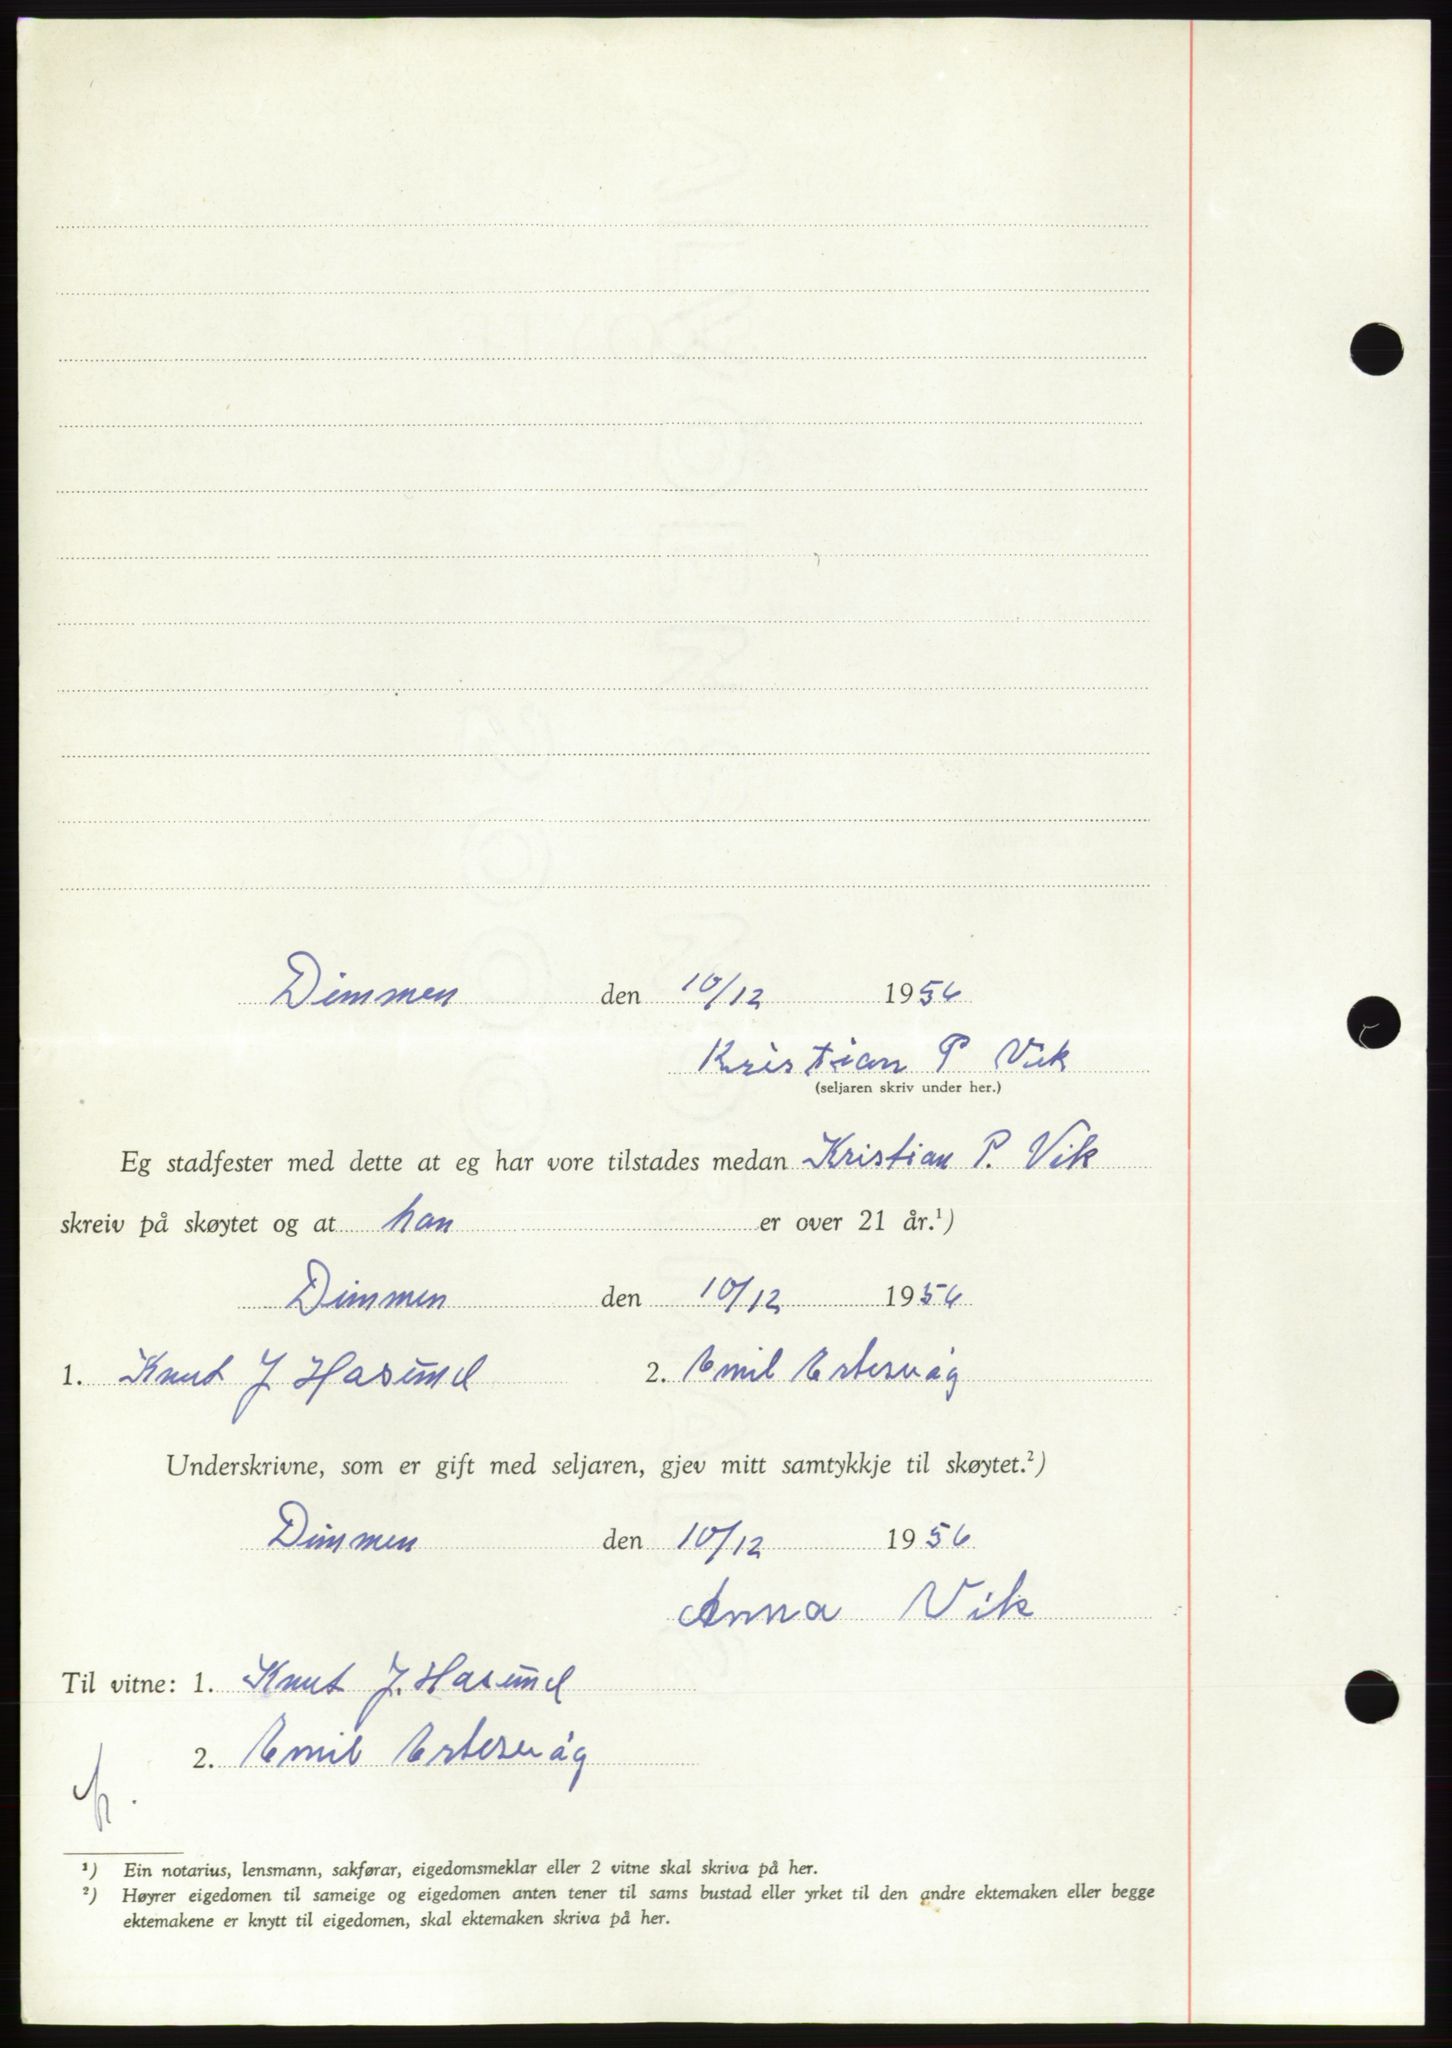 Dimmen den 10/12 1956
Kristian P Vik
(seljaren skriv under her.)
Eg stadfester med dette at eg har vore tilstades medan Kristian P. Vik
skreiv på skøytet og at han er over 21 år.¹)
Dimmen den 10/12 1956
1. Knut J Hasund 2. Emil Ertesvåg
Underskrivne, som er gift med seljaren, gjev mitt samtykkje til skøytet.²)
Dimmen den 10/12 1956
Anna Vik
Til vitne: 1. Knut J. Hasund
2. Emil Ertesvåg
¹) Ein notarius, lensmann, sakførar, eigedomsmeklar eller 2 vitne skal skriva på her.
²) Høyrer eigedomen til sameige og eigedomen anten tener til sams bustad eller yrket til den andre ektemaken eller begge
ektemakene er knytt til eigedomen, skal ektemaken skriva på her.